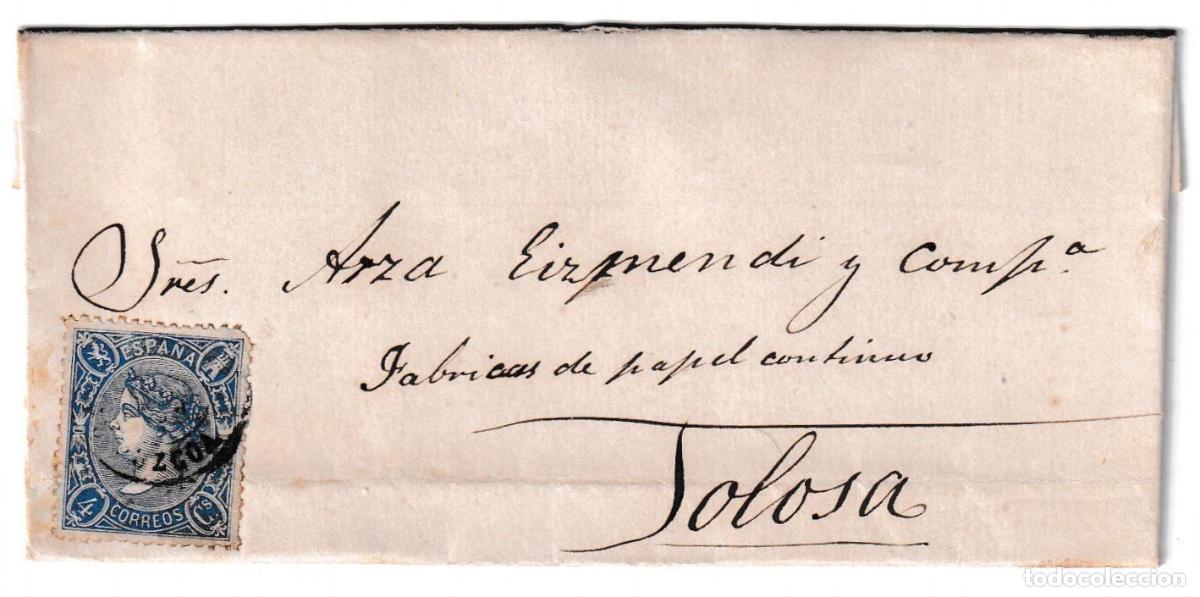 Sres. Arza Eizmendi y Compª
Fabricas de papel continuo
Tolosa
ESPAÑA
4 CORREOS Cs
todocoleccion